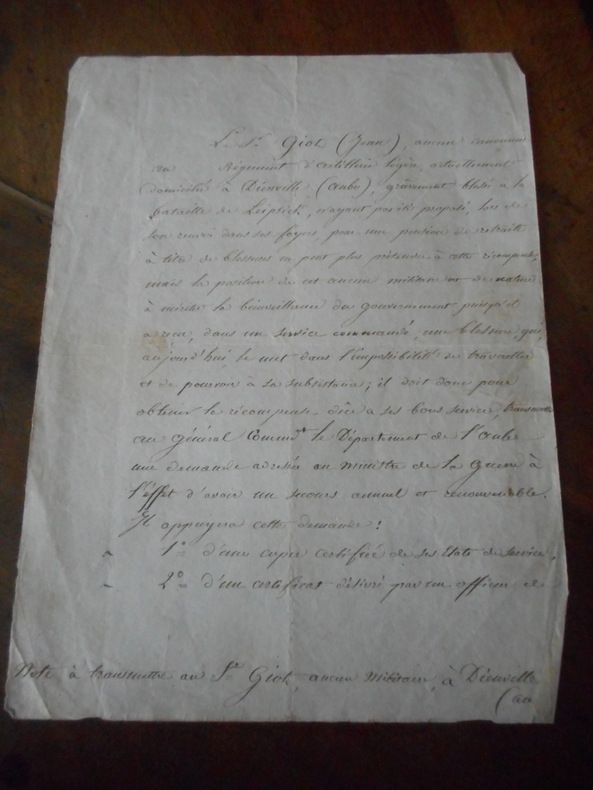 Le Sr Giot (Jean), ancien canonnier
au Régiment d'artillerie légère, actuellement
domicilié à Dienville (Aube), grièvement blessé à la
bataille de Leipsick, n'ayant pas été proposé, lors de
son renvoi dans ses foyers, pour une pension de retraite
à titre de blessures ne peut plus prétendre à cette récompense,
mais la position de cet ancien militaire est de nature
à mériter la bienveillance du gouvernement puisqu'il
a reçu, dans un service commandé, une blessure qui,
aujourd'hui le met dans l'impossibilité de travailler
et de pourvoir à sa subsistance; il doit donc pour
obtenir la récompense dûe à ses bons services, transmettre
au général Commt le Département de l'aube
une demande adressée au Ministre de la Guerre à
l'effet d'avoir un secours annuel et renouvelable.
Il appuyera cette demande:
1º d'une copie certifiée de ses États de service,
2º d'un certificat délivré par un officier de
Note à transmettre au Sr Giot, ancien Militaire, à Dienville
(au